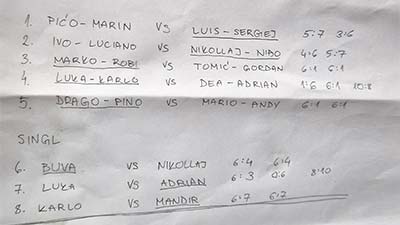 1. PIĆO - MARIN VS LUIS - SERGIEJ 5:7 3:6
2. IVO - LUCIANO VS NIKOLLAJ - NIĐO 4:6 5:7
3. MARKO - ROBI VS TOMIĆ - GORDAN 6:1 6:1
4. LUKA - KARLO VS DEA - ADRIAN 1:6 6:1 10:8
5. DRAGO - PINO VS MARIO - ANDY 6:1 6:1
SINGL
6. BUVA VS NIKOLLAJ 6:4 6:4
7. LUKA VS ADRIAN 6:3 0:6 8:10
8. KARLO VS MANDIR 6:7 6:7